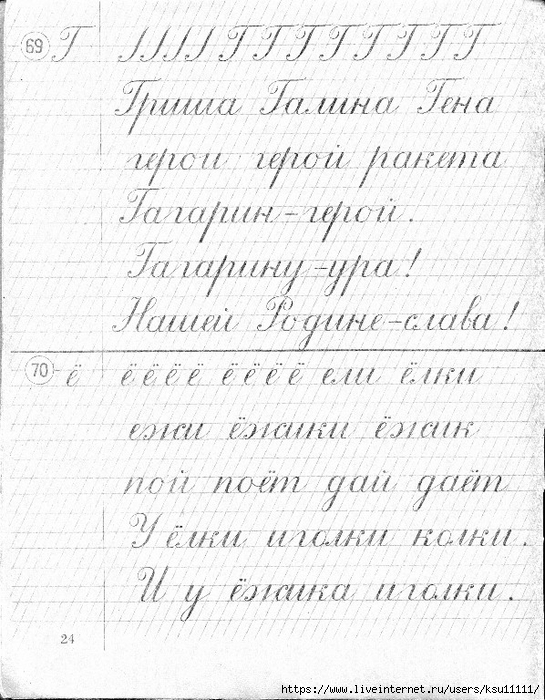 69 Г Г Г Г Г Г Г Г Г Г
Гриша Галина Гена
герои герой ракета
Гагарин-герой.
Гагарину-ура!
Нашей Родине-слава!
70 ё ё ё ё ё ё ё ё ё ели ёлки
ежи ёжики ёжик
пой поёт дай даёт
У ёлки иголки колки.
И у ёжика иголки.
24
https://www.liveinternet.ru/users/ksu11111/